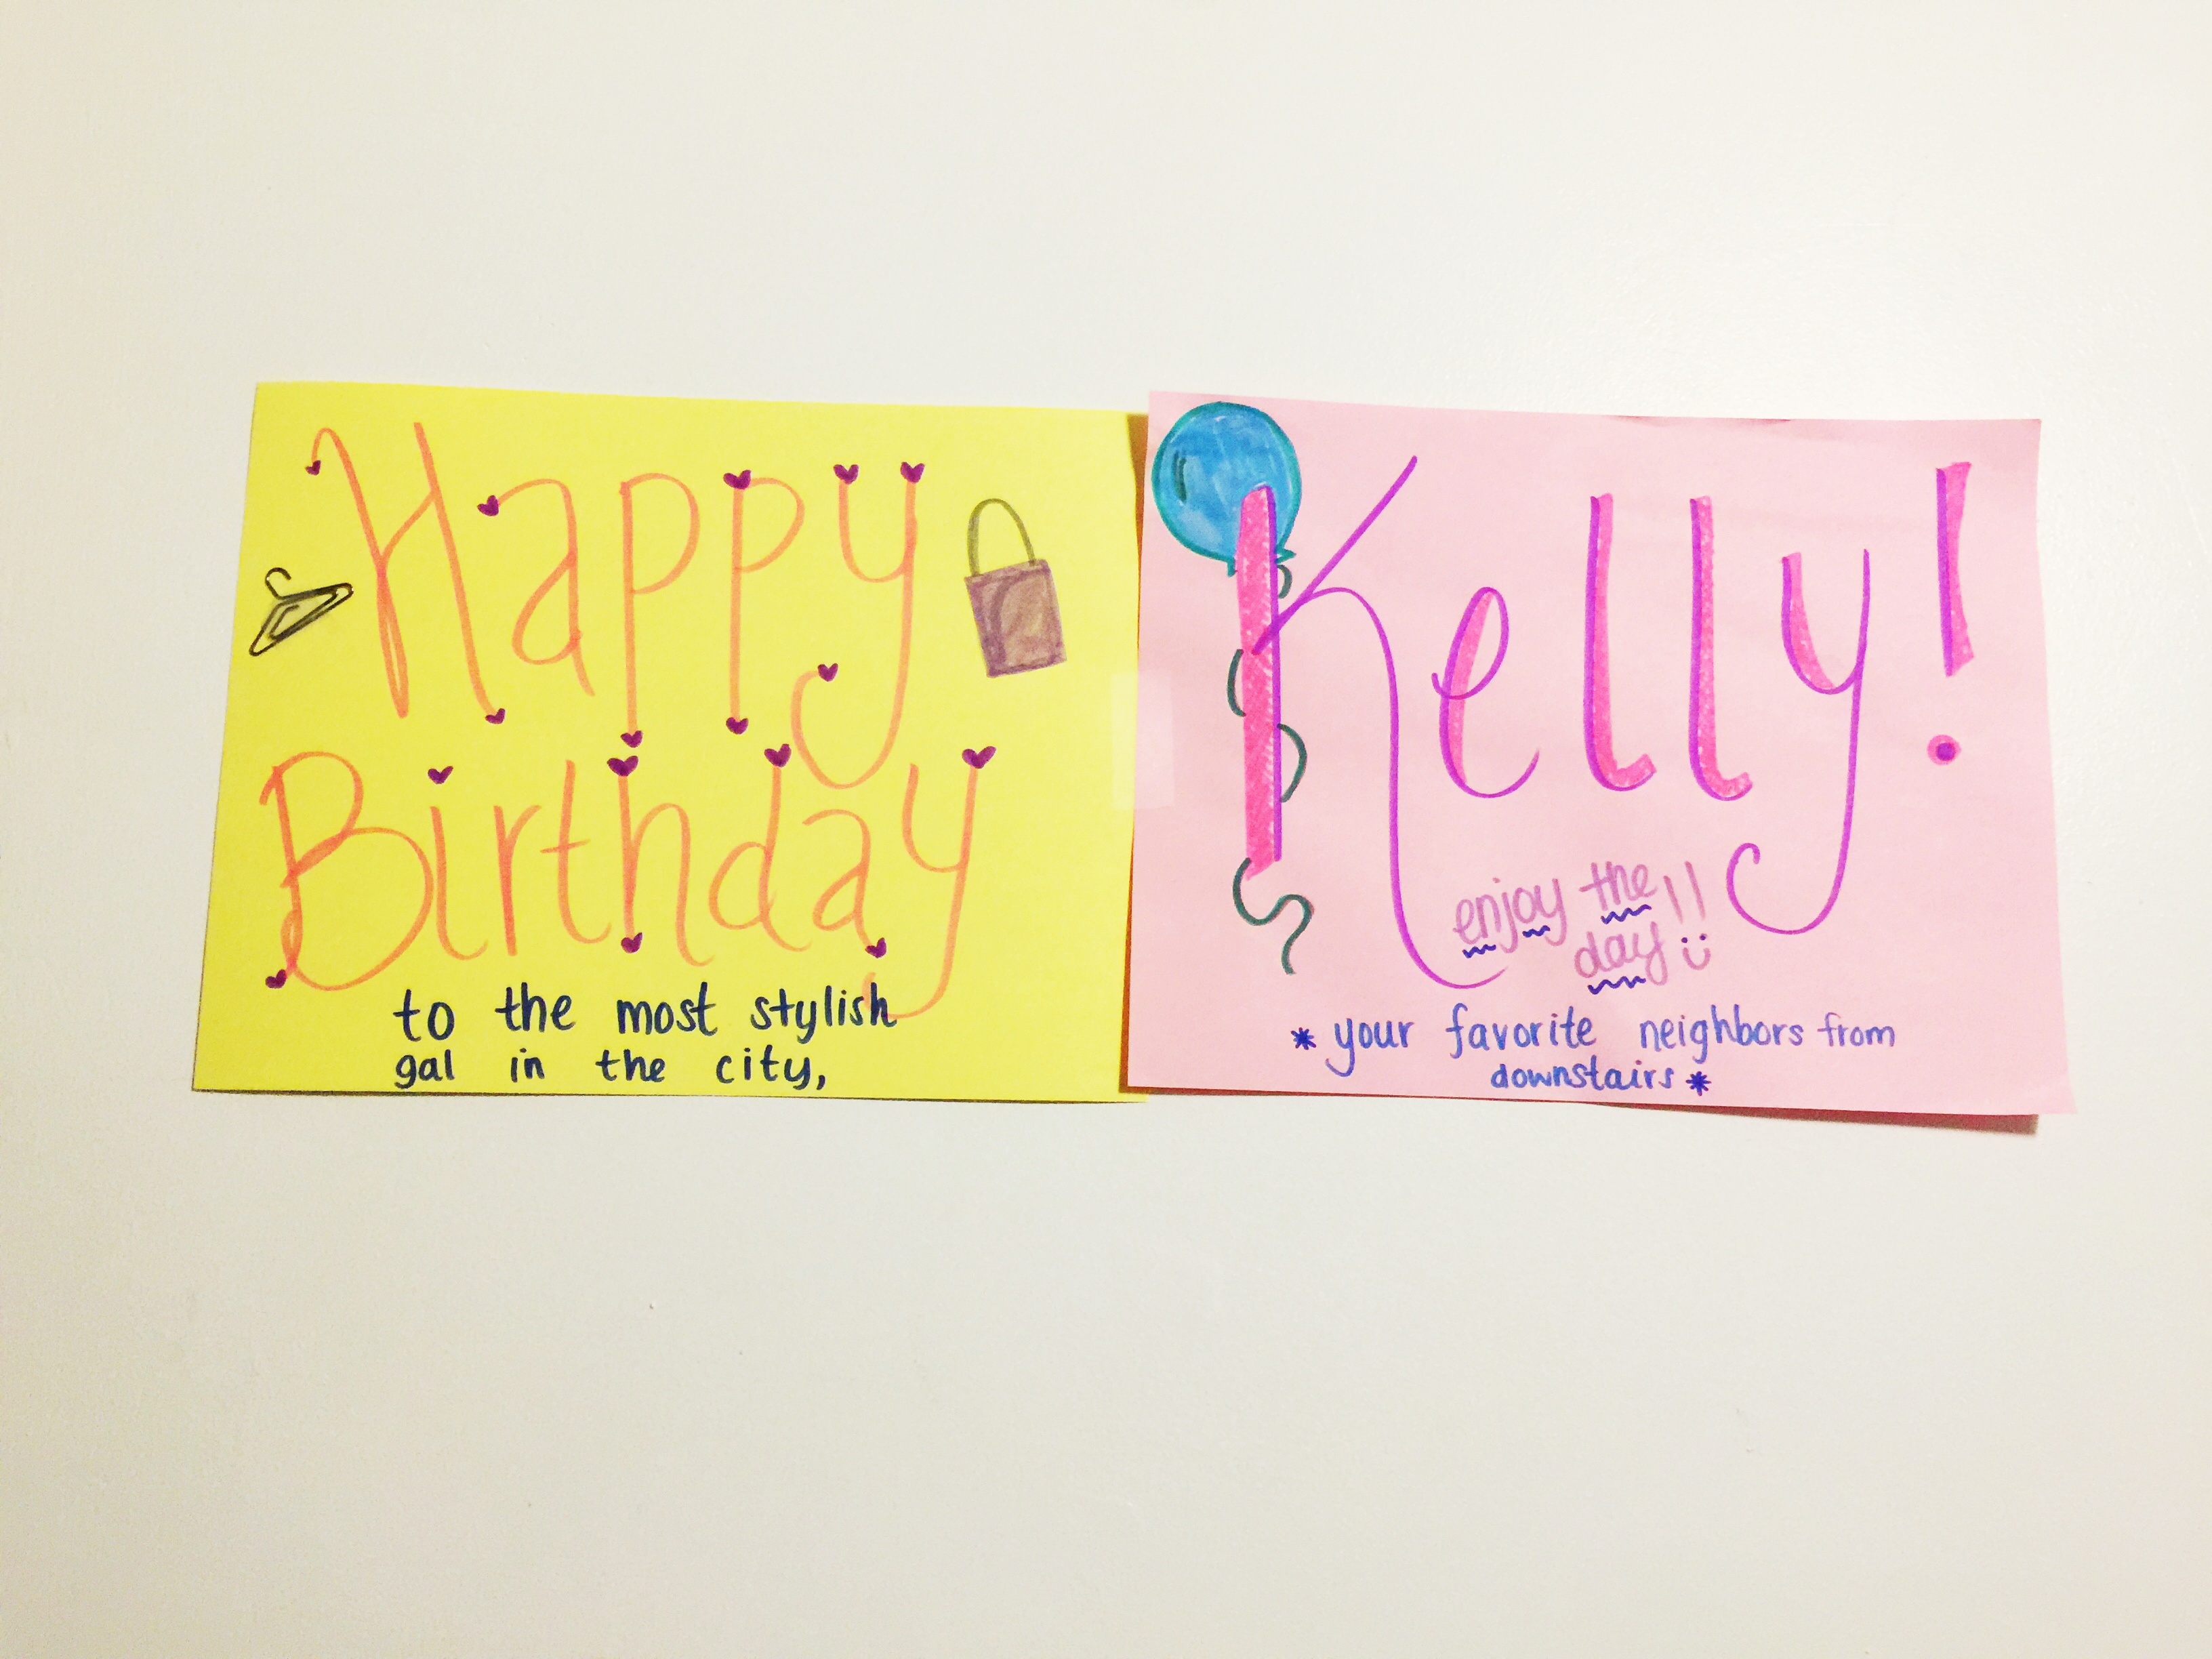 Happy
Birthday
to the most stylish
gal in the city,
Kelly!
enjoy the!!
day ü
* your favorite neighbors from
downstairs *